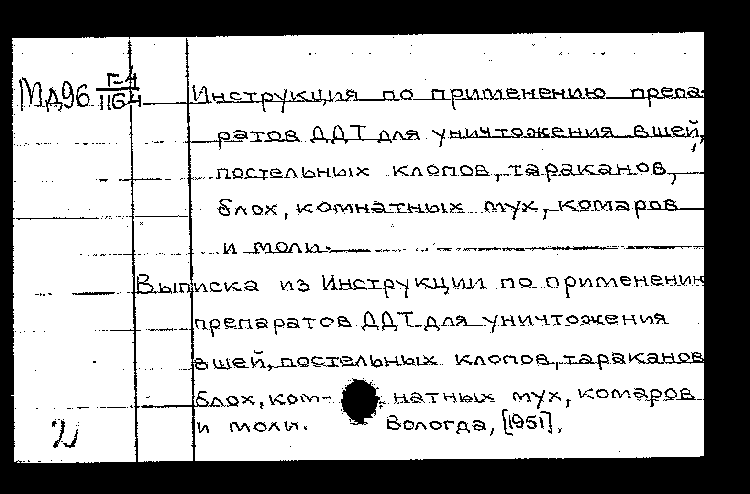 МД96 Г-4
1164
Инструкция по применению препа-
ратов ДДТ для уничтожения вшей,
постельных клопов, тараканов,
блох, комнатных мух, комаров
и моли.
Выписка из Инструкции по применению
препаратов ДДТ для уничтожения
вшей, постельных клопов, тараканов
блох, ком- натных мух, комаров
и моли. Вологда, [1951],
2